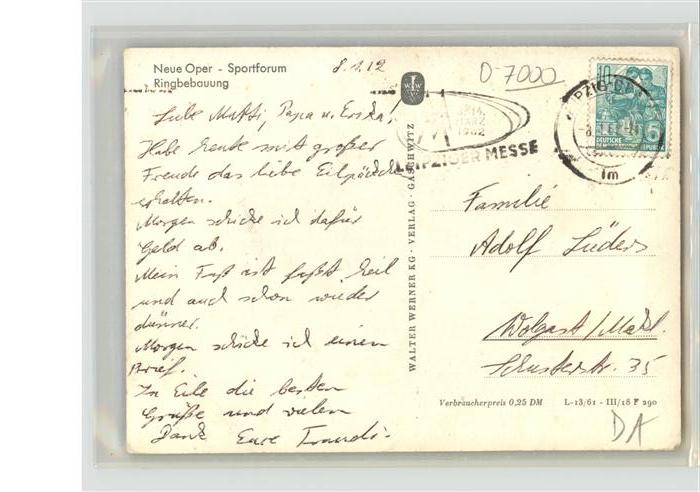 Neue Oper - Sportforum
Ringbebauung
8.1.12
D-7000
Liebe Mutti, Papa u. Erika!
Habe heute mit großer
Freude das liebe Eilpäckchen
erhalten.
Morgen schicke ich dafür
Geld ab.
Mein Fuß ist heil
und auch schon wieder
dünner.
Morgen schicke ich einen
Brief.
In Eile die besten
Grüße und vielen
Dank Eure Traudi.
WALTER WERNER KG · VERLAG · GASCHWITZ
MÄRZ
1962
LEIPZIGER MESSE
DEUTSCHE
5
Familie
Adolf Lüders
Wolgast/Meckl.
Schusterstr. 35
Verbraucherpreis 0,25 DM L-13/61 - III/18 F 290
DA